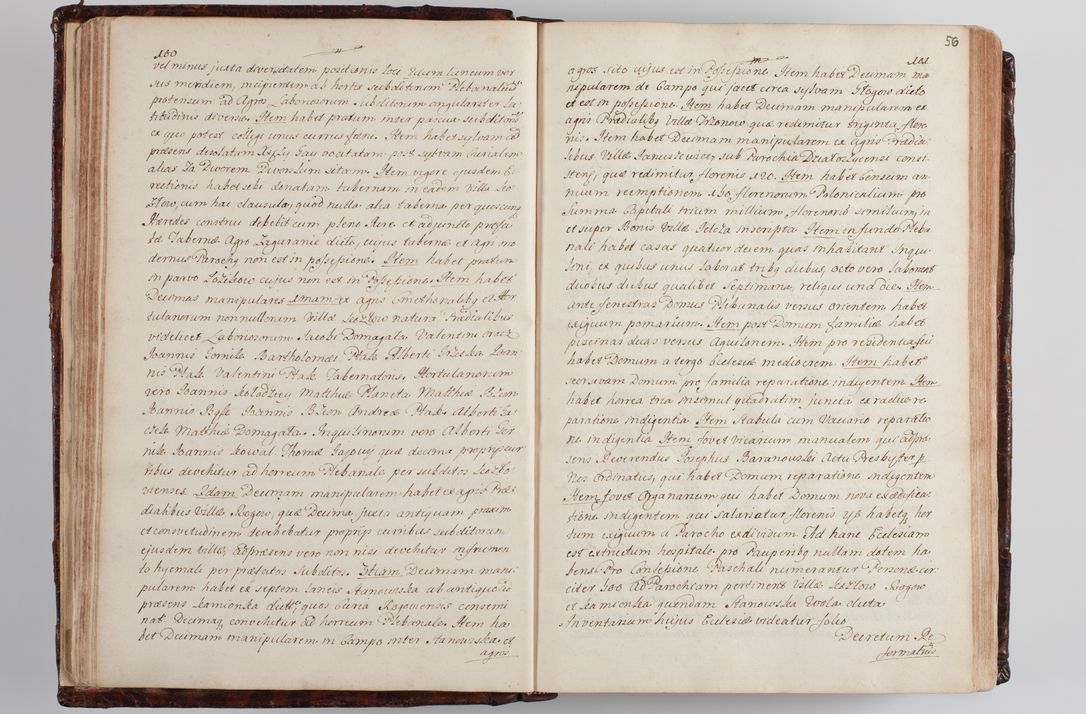 100
vel minus juxta diversitatem positionis loci Edum Laneum ver
sus meridiem, incipientem ab hortis Subditorum Plebanalium
protensum ad Agros Laboriosorum Subditorum angulariter La-
titudinis diversæ. Item habet pratum inter pascua subditorum
ex quo potest colligi unus currus fæni. Item habet sylvam ad
præsens desolatam Księży Gay vocitatam post sylvam Hærialem
alias Za Dworem Diversum sitam. Item vigore ejusdem E-
rectionis habet sibi donatam tabernam in eadem Villa Ko
złow, cum hac clausula, quod nulla alia taberna per quoscunq
Hæredes construi debebit cum pleno Jure et adjuncto præfa-
tæ Tabernæ Agro Zaguranie dicto, cujus tabernæ et Agri mo
dernus Parochus non est in possessione. Item habet pratum
in parvo Kozłow cujus non est in Possessione. Item habet
Decimas manipulares unam ex agris Cmethonalibq et Hor
tulanorum nonnullorum Villæ Kozłow natura Prædialibus
videlicet Laboriosorum Jacobi Domagała Valentini oracz
Joannis Gornik Bartholomæi Ptak Alberti Joan-
nis Ptak Valentini Ptak Tabernatoris. Hortulanorum
vero Joannis Kołodziey Matthiæ Planeta Matthiæ Bzion
Joannis Joannis Bzion Andreæ Ptak Alberti Ja
Matthiæ Domagała. Inquilinorum vero Alberti
Joannis Kowal Thomæ quæ decima proprijs cur
ribus devehitur ad horreum Plebanale per subditos Kozło-
vienses. Edam Decimam manipularem habet ex agris Præ-
dialibus Villæ Rogow, quæ Decima juxta antiquam praxim
et consvetudinem devehebatur proprijs curribus subditorum
ejusdem villæ, ad præsens vero non nisi devehitur
lo hyemali per præfatos subditos. 3tiam Decimam mani-
pularem habet ex septem Laneis Stanowska ab antiquo ad
præsens Kamionka dictis, quos Curia Rogoviensis consemi
nat. Decimaq convehitur ad horreum Plebanale. Item ha
bet Decimam manipularem in Campo inter Stanowska et
agros
56
101
agros sito cujus est in Possessione. Item habet Decimam ma
nipularem de Campo qui jacet circa sylvam Głogow dicto
et est in possessione. Item habet Decimam manipularem ex
agris Prædialibq Villæ Trzonow quæ redimitur triginta flore
nis. Item habet Decimam manipularem ex Agris Prædia-
libus Villæ Januszewice, sub Parochia consi-
stentis, quæ redimitur florenis 120. Item habet Censum an
nuum reemptionem 150 florenorum Polonicalium pro
summa Capitali trium millium florenorum similium, in
et super Bonis Villæ Jeleza inscripta. Item in fundo Pleba
nali habet casas quatuor decem quas inhabitant Inqui-
lini, ex quibus unus laborat tribq diebus, octo vero laborant
duobus diebus qualibet Septimana, reliqui una die. Item
ante fenestras Domus Plebanalis versus orientem habet
exiguum pomarium. Item post Domum familiæ habet
piscinas duas versus Aquilonem. Item pro residentia sui
habet Domum a tergo Ecclesiæ mediocrem. Item habet
seorsivam Domum pro familia reparatione indigentem. Item
habet horrea tria insemul quadratim juncta ex radice re-
paratione indigentia. Item stabula cum Vaccario reparatio
ne indigentia. Item fovet Vicarium manualem qui ad præ-
sens Reverendus Josephus Baranowski Actu Presbyter p
nes ordinatus, qui habet Domum reparatione indigentem.
Item fovet Organarium qui habet Domum nova exædifica-
tione indigentem qui salariatur florenis 78 habetq hor
tum exiguum a Parocho ex dividum. Ad hanc Ecclesiam
est extructum hospitale pro Pauperibq nullam dotem ha
bens. Pro Confessione Paschali numerantur Personæ cir
citer 300. Ad Parochiam pertinent Villæ Kozłow Rogow
et Kamionka quondam Stanowska Wola dicta.
Inventarium hujus Ecclesiæ videatur folio
Decretum Re
formatiois